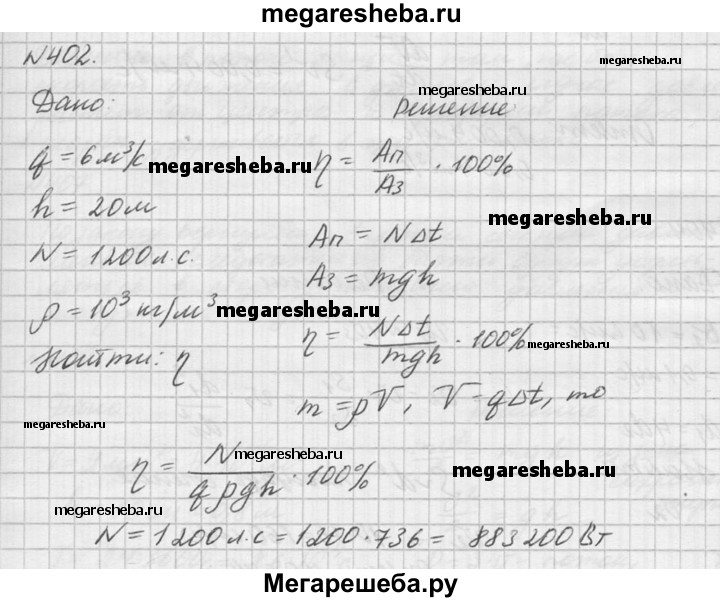 megaresheba.ru
№402.
megaresheba.ru
Дано: Решение:
megaresheba.ru
q = 6 м³/с
megaresheba.ru
η = Aп/Aз · 100%
h = 20 м
megaresheba.ru
Aп = NΔt
N = 1200 л.с.
Aз = mgh
ρ = 10³ кг/м³
megaresheba.ru
η = NΔt/mgh · 100%
megaresheba.ru
Найти: η
m = ρV, V = qΔt, то
megaresheba.ru
η = N/qρgh · 100%
megaresheba.ru
megaresheba.ru
megaresheba.ru
megaresheba.ru
N = 1200 л.с = 1200 · 736 = 883200 Вт
Мегарешеба.ру